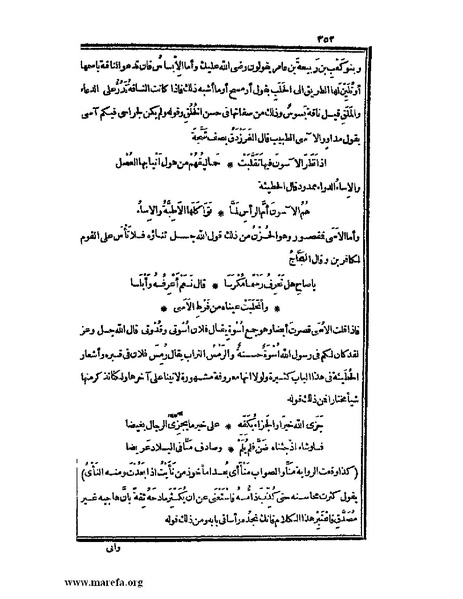 ٣٥٣
وبنو كعب بن ربيعة بن عامر يقولون رضى الله عليك وأما الإبساس فان تدعو الناقة باسمها
أو تلين لها الطريق الى الحلب يقول أو مسح أو ما أشبه ذلك فاذا كانت الناقة تدر على الدعاء
والملق قيل ناقة بسوس وذلك من صفاتها فى حسن الخلق وقوله ولم يكن لجراحى فيكم آسى
يقول مداو والآسى الطبيب قال الفرزدق يصف شجة
اذا نظر الآسون فيها تقلبت * حماليقهم من هول أنيابها العصل
والإساء الدواء ممدود قال الحطيئة
هم الآسون أم الرأس لما * تواكلها الأطبة والإساء
وأما الأسى فمقصور وهو الحزن من ذلك قول الله جل ثناؤه فلا تأس على القوم
الكافرين وقال العجاج
ياصاح هل تعرف رسما مكرسا * قال نعم أعرفه وأبلسا
* وانحلبت عيناه من فرط الأسى *
فاذا قلت الأسى قصرت أيضا وهو جمع أسوة يقال فلان أسوتى وقدوتى قال الله جل وعز
لقد كان لكم فى رسول الله أسوة حسنة والرمس التراب يقال رمس فلان فى قبره وأشعار
الحطيئة فى هذا الباب كثيرة ولولا انها معروفة مشهورة لأتينا على آخرها ولكنا نذكر منها
شيأ مختارا فمن ذلك قوله
جزى الله خيرا والجزاء بكفه * على خير ما يجزى الرجال بغيضا
فلو شاء اذ جئناه ضن فلم يلم * وصادف منأى فى البلاد عريضا
(كذا وقعت الرواية منا والصواب منأى أى بعدا مأخوذ من نأيت اذا بعدت ومنه النأى)
يقول كثرت محاسنه حتى كذب ذامه فاستغنى عن ان يكثر مادحه ثقة بان هاجيه غير
مصدق فاعتبر هذا الكلام فانك تجده رأسا فى بابه ومن ذلك قوله
وانى
www.marefa.org